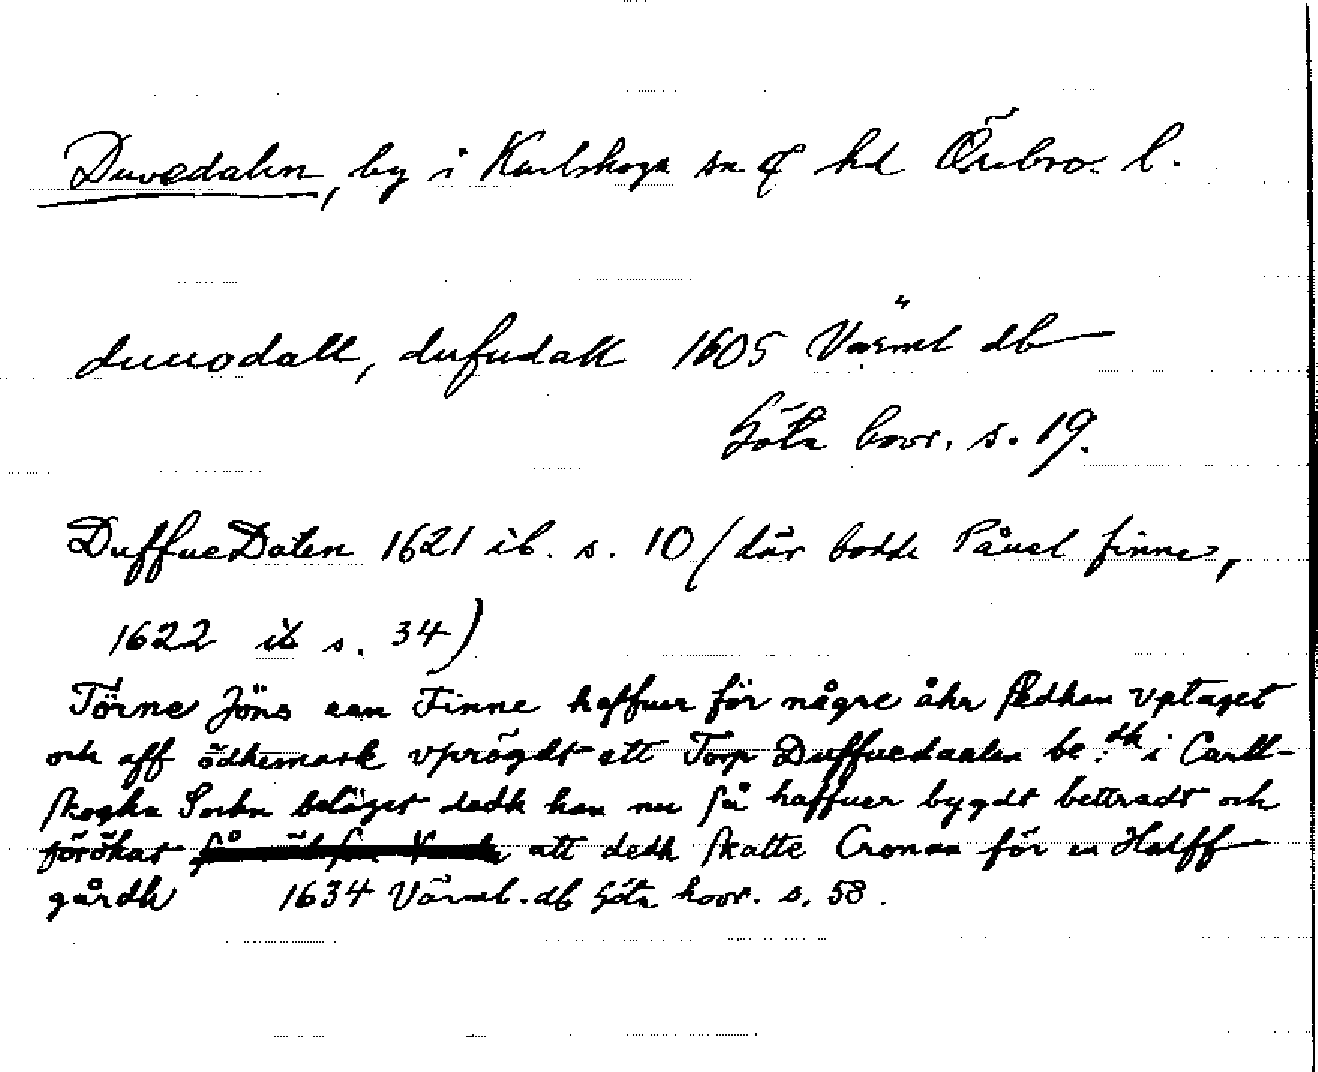 Duvedalen, by i Karlskoga sn o hd Örebro l.
duuodall, dufudall 1605 Värml db
Göta hovr. s. 19.
DuffueDalen 1621 ib. s. 10 (där bodde Påuel finne,
1622 ib s. 34)
Törne Jöns een Finne haffuer för någre åhr sedhan vptaget
och aff ödhemark vprögdt ett Torp Duffuedaalen be:dh i Carll-
skogha Sochn beläget dedh han nu så haffuer bygdt bettradt och
förökat att dedh skatte Cronan för en Halff
gårdh 1634 Värml. db Göta hovr. s. 58.